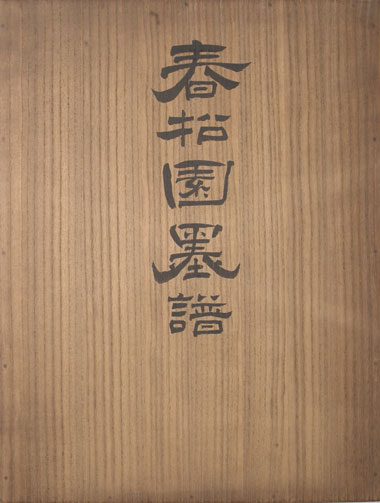 春松園墨譜